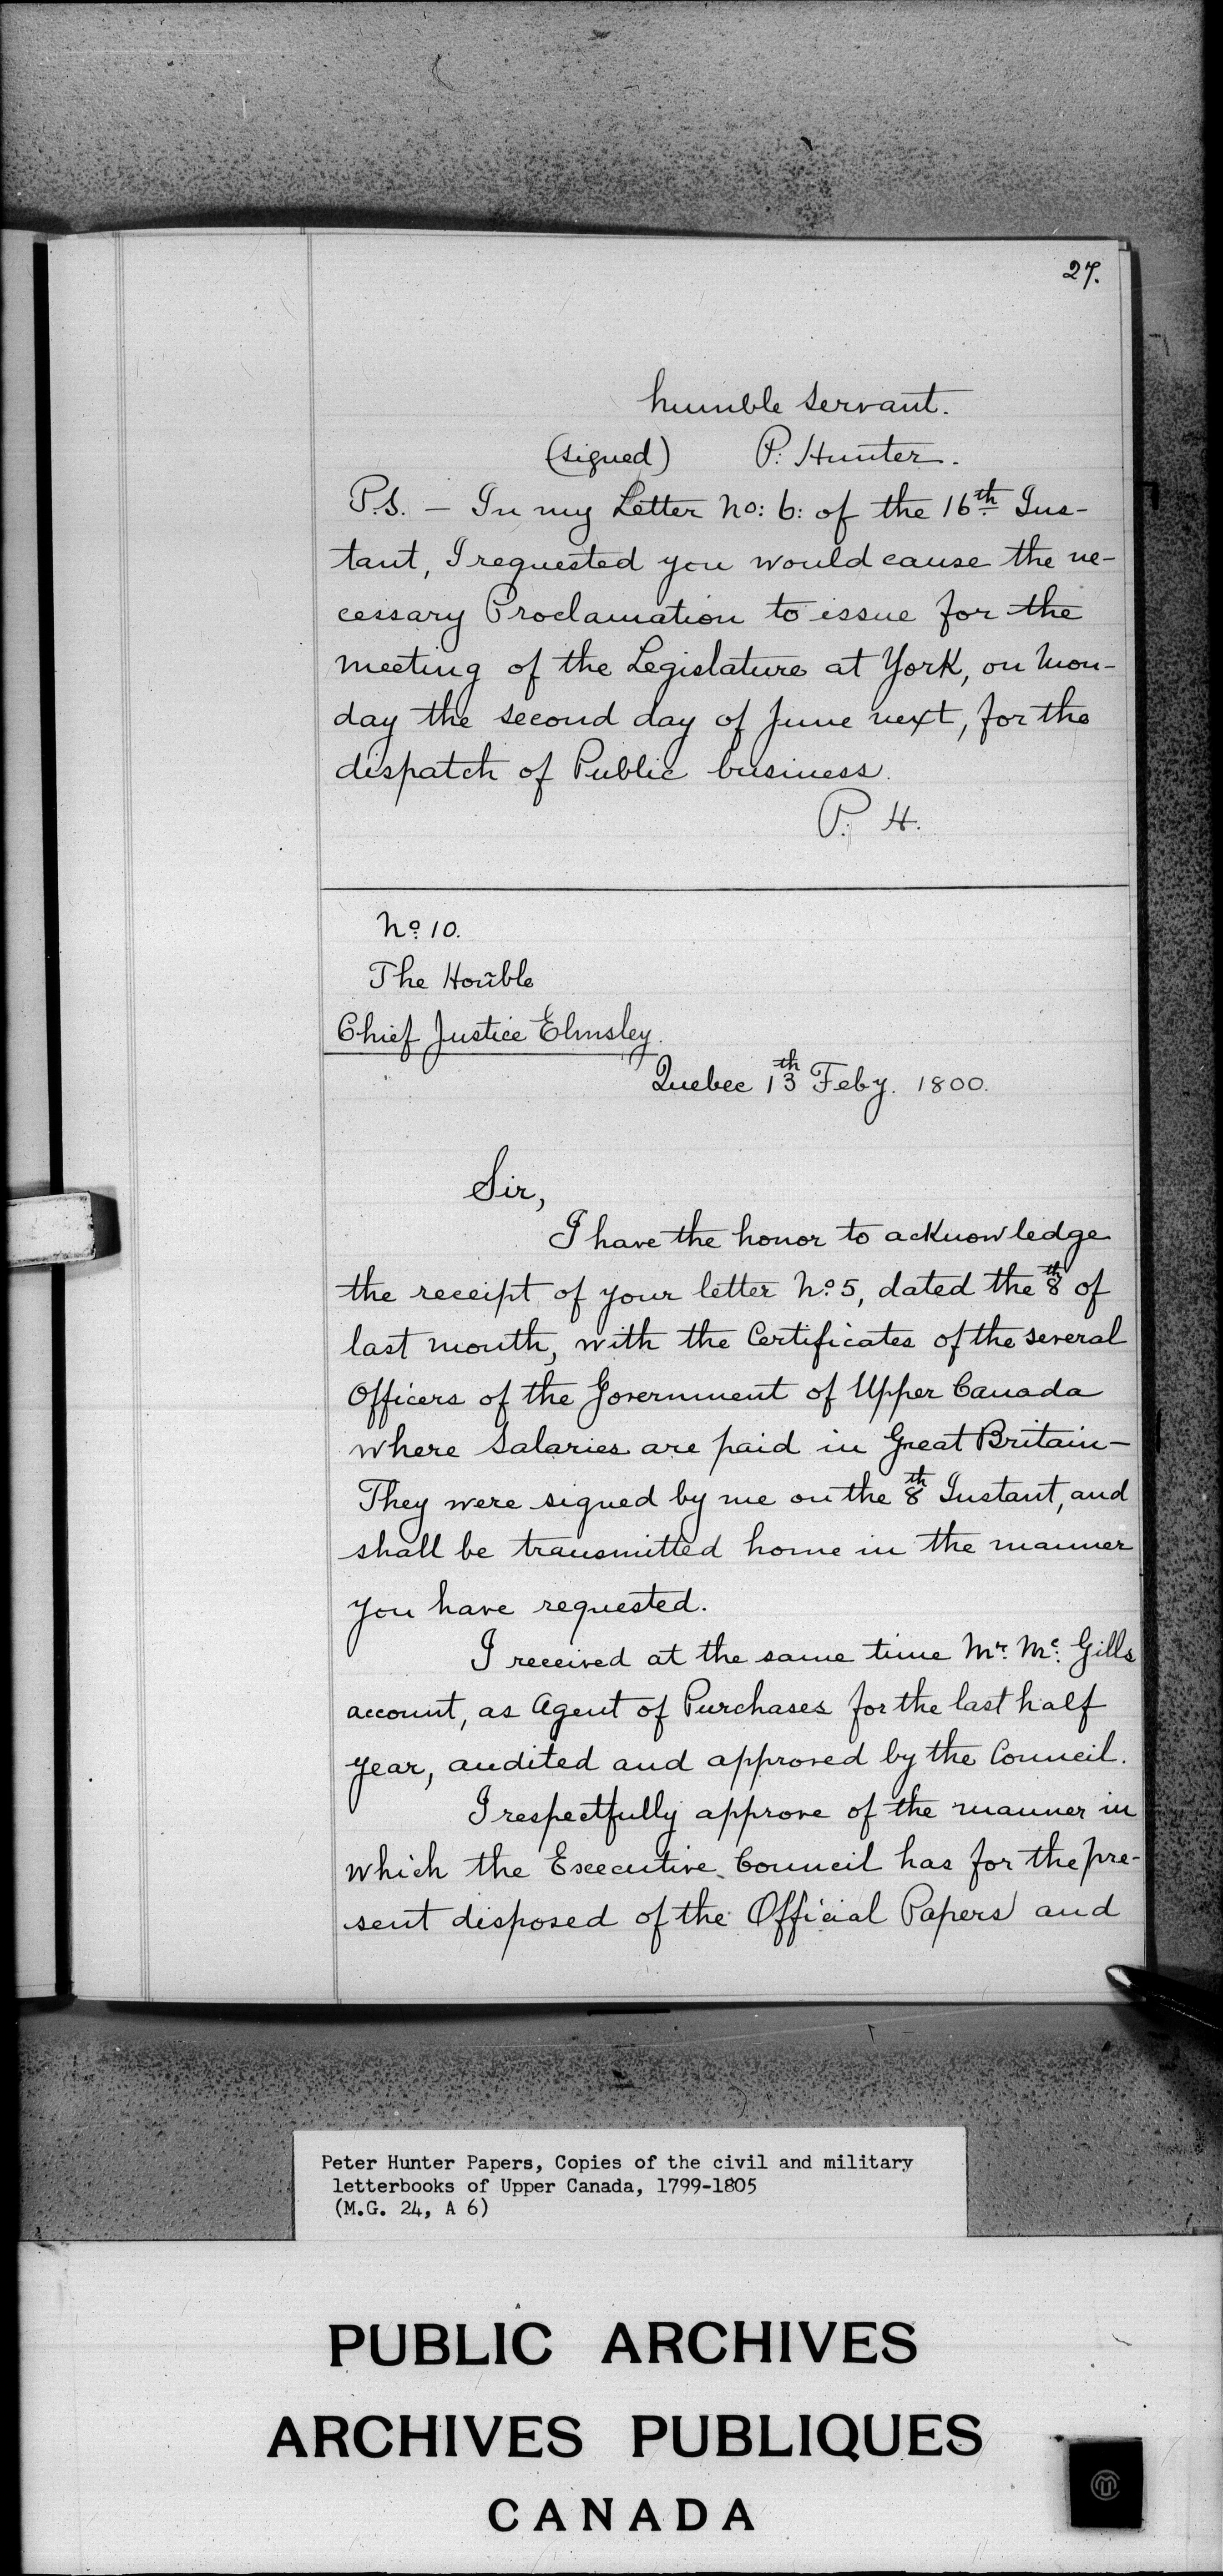 27.
humble servant.
(signed) P. Hunter.
P.S. — In my Letter No: 6: of the 16th Ins-
tant, I requested you would cause the ne-
cessary Proclamation to issue for the
meeting of the Legislature at York, on Mon-
day the second day of June next, for the
dispatch of Public business.
P. H.
No. 10.
The Hon̄ble
Chief Justice Elmsley.
Quebec 13th Feby. 1800.
Sir,
I have the honor to acknowledge
the receipt of your letter No. 5, dated the 8th of
last month, with the Certificates of the several
Officers of the Government of Upper Canada
where Salaries are paid in Great Britain—
They were signed by me on the 8th Instant, and
shall be transmitted home in the manner
you have requested.
I received at the same time Mr. Mc. Gills
account, as Agent of Purchases for the last half
year, audited and approved by the Council.
I respectfully approve of the manner in
which the Executive Council has for the pre-
sent disposed of the Official Papers and
Peter Hunter Papers, Copies of the civil and military
letterbooks of Upper Canada, 1799-1805
(M.G. 24, A 6)
PUBLIC ARCHIVES
ARCHIVES PUBLIQUES
CANADA